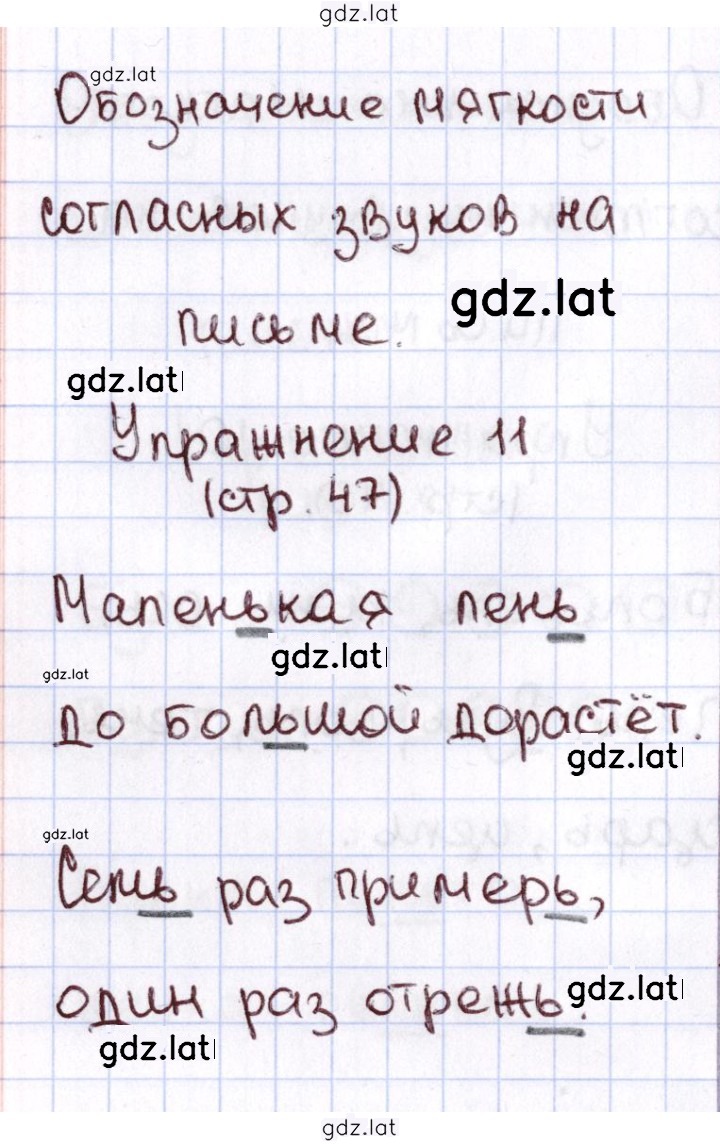 gdz.lat
gdz.lat
Обозначение мягкости
согласных звуков на
gdz.lat
письме.
gdz.lat
Упражнение 11
(стр. 47)
Маленькая лень
gdz.lat
gdz.lat
до большой дорастёт.
gdz.lat
gdz.lat
Семь раз примерь,
gdz.lat
один раз отрежь.
gdz.lat
gdz.lat